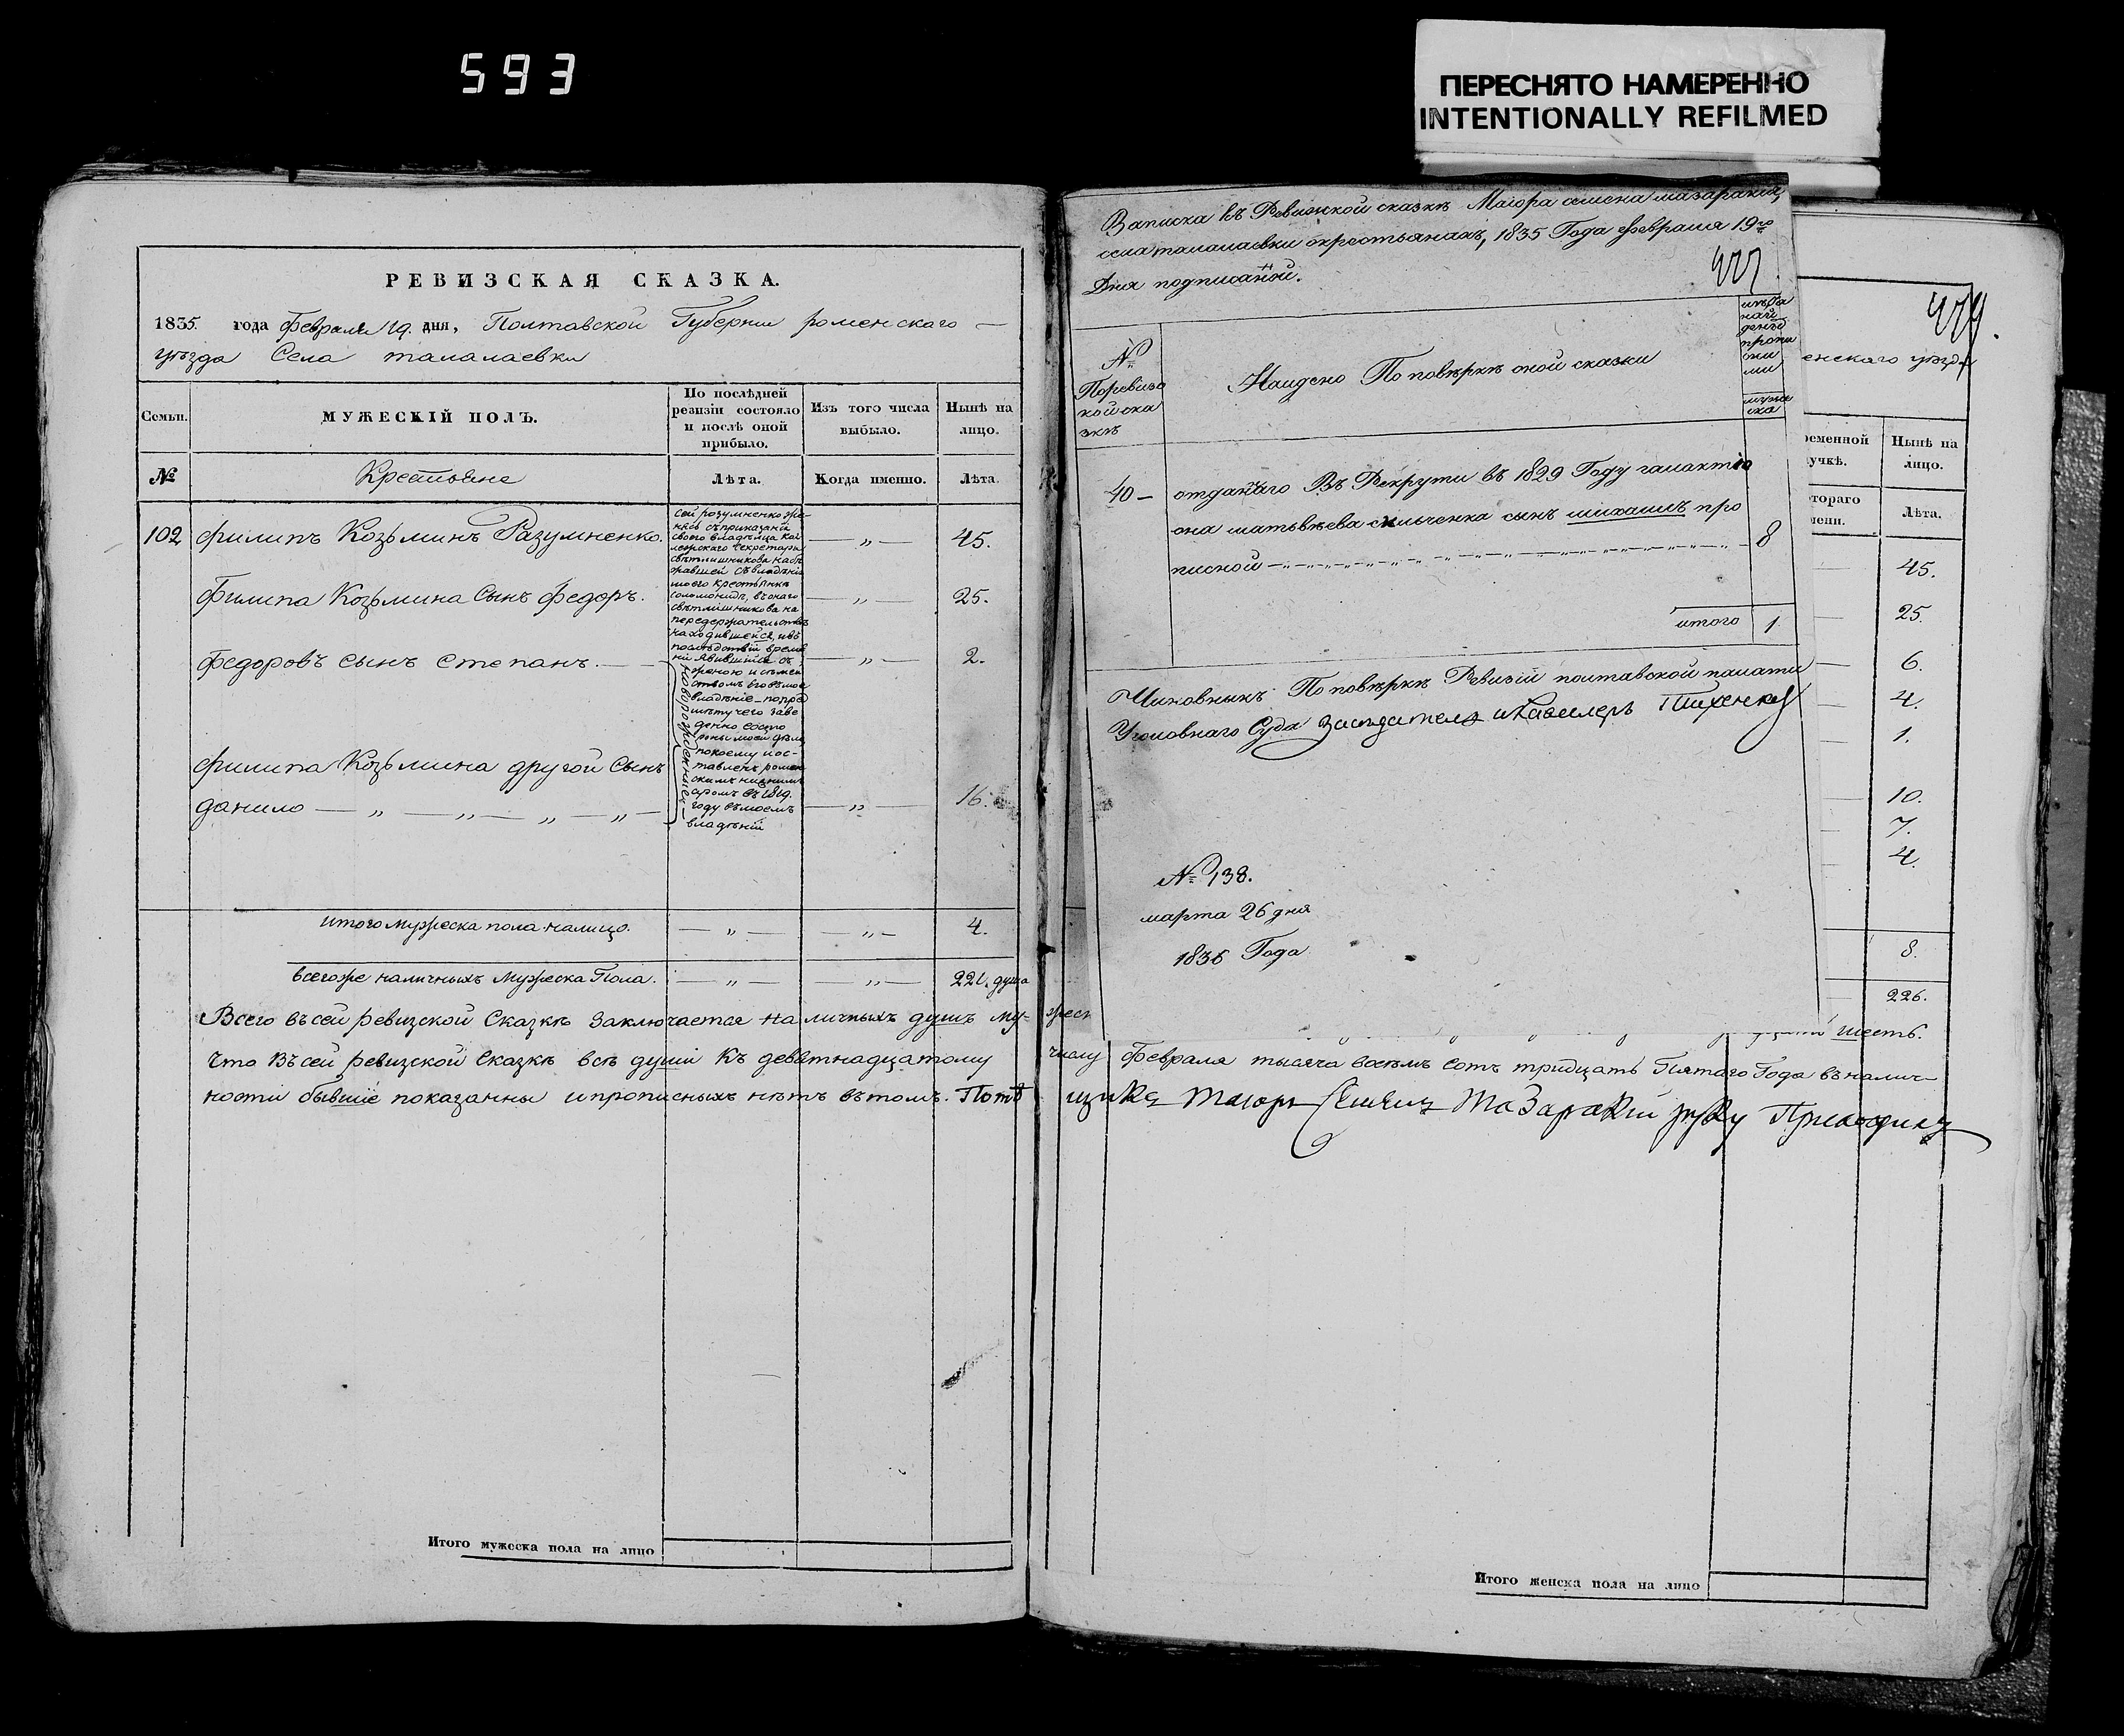 593
ПЕРЕСНЯТО НАМЕРЕННО
INTENTIONALLY REFILMED
РЕВИЗСКАЯ СКАЗКА.
1835. года Февраля 19. дня, Полтавской Губернии роменскаго —
уѣзда Села талалаевки
Семьи.
МУЖЕСКІЙ ПОЛЪ.
По послѣдней
ревизіи состояло
и послѣ оной
прибыло.
Изъ того числа
выбыло.
Нынѣ на
лицо.
№
Крестьяне
Лѣта.
Когда именно.
Лѣта.
102
филипъ Козьминъ Разумненко.
— „ —
45.
Филипа Козьмина Сынъ федоръ.
— „ —
25.
Федоровъ сынъ степанъ. —
— „ —
2.
филипа Козьмина другой Сынъ
данило — „ — „ — „ — „ —
— „ —
16.
сей розумненко же
своего владѣльца кол
лежскаго секретаря
моего крестьянкѣ
находившейся
владѣніе
году въ моемъ
владѣніи
итого мужеска пола налицо.
— „ —
— „ —
4.
всегоже наличныхъ мужеска Пола.
— „ —
— „ —
221. душа
Всего въ сей ревизской Сказкѣ заключается наличныхъ душъ му-
шесть.
Что въ сей ревизской Сказкѣ всѣ души Къ девятнадцатому
числу Февраля тысяча восемь сотъ тридцать Пятаго Года въ налич-
ности бывшіе показанны и прописныхъ нѣтъ въ томъ.
Маіоръ Семенъ Мазаракій руку Приложилъ
Итого мужеска пола на лицо
Записка въ Ревизкой сказкѣ Маіора семена мазаракія,
села талалаевки окрестьянахъ, 1835 Года февраля 19го
Дня подписаной.
№
Поревизс
кой ска
зкѣ
Найдено По повѣркѣ оной сказки
мужес
ска
40 —
отданаго Въ Рекруты въ 1829 Году галактіо
она матвѣева сильченка сынъ михаилъ про
писной
8
итого
1
Чиновникъ По повѣркѣ Ревизій полтавской палаты
Уголовнаго Суда засѣдатель и Кавалеръ
№ 138.
марта 26 дня
1836 Года
479.
енскаго уѣзда
ременной
учкѣ.
Нынѣ на
лицо.
тораго
мени.
Лѣта.
45.
25.
6.
4.
1.
10.
7.
4.
8.
226.
Итого женска пола на лицо